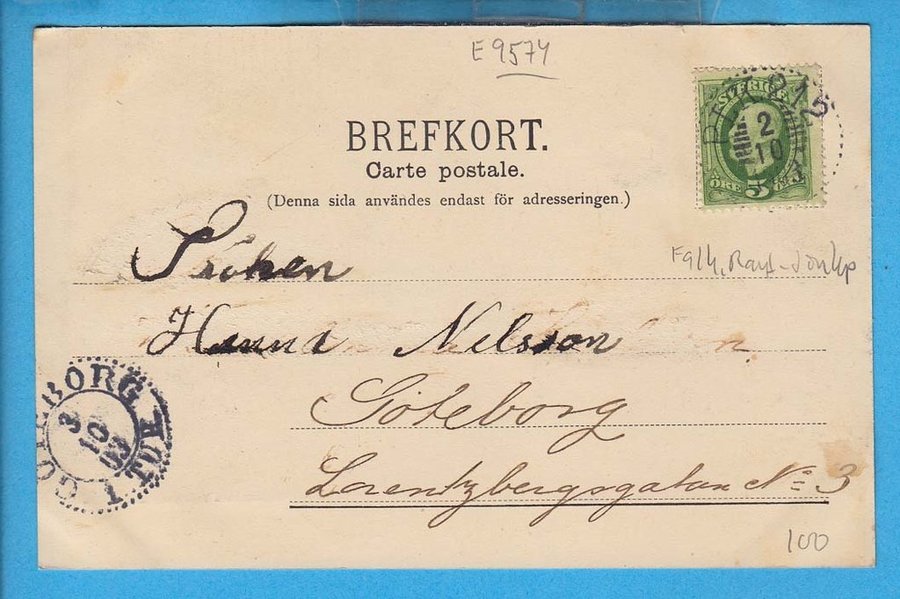 E 9574
BREFKORT.
Carte postale.
(Denna sida användes endast för adresseringen.)
SVERIGE
2
10
5
ÖRE
Fröken
Hanna Nelsson
Göteborg
Lorentzbergsgatan No 3
GÖTEBORG 1 TUR
3
10
03
100